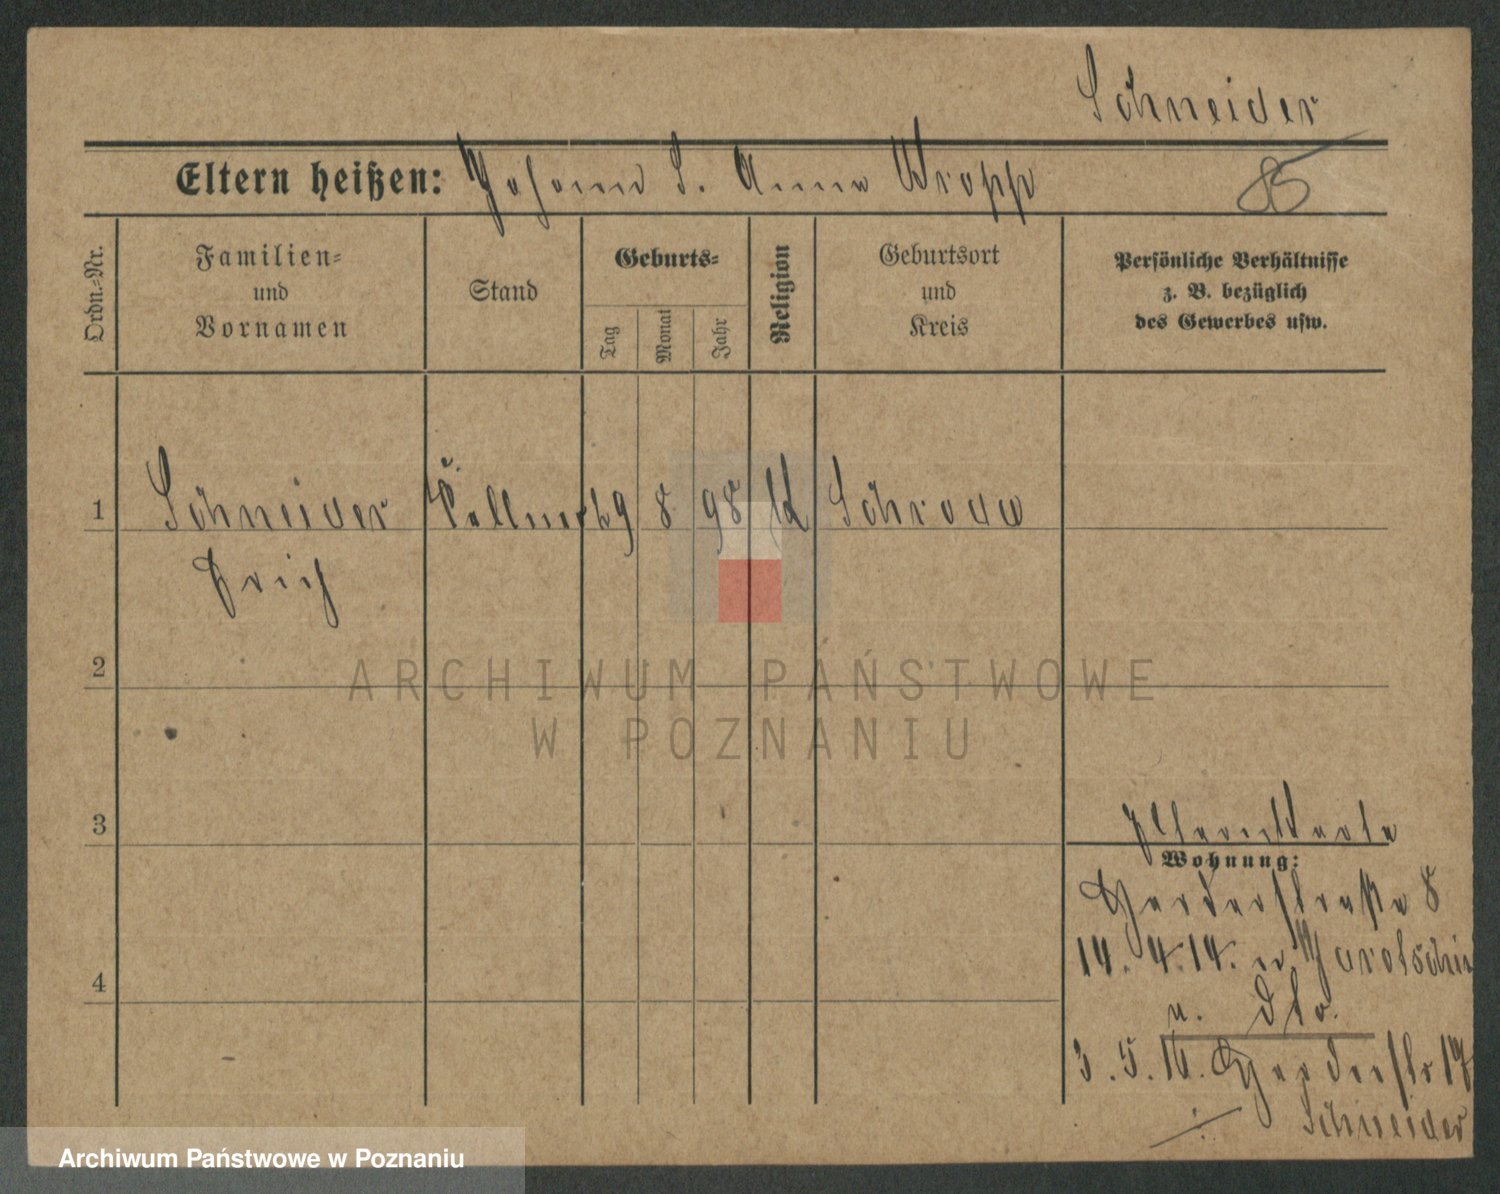 Schneider
Eltern heißen: Johann S. Anna Wropp
85
Ordn.-Nr.
Familien-
und
Vornamen
Stand
Geburts-
Tag
Monat
Jahr
Religion
Geburtsort
und
Kreis
Persönliche Verhältnisse
z. B. bezüglich
des Gewerbes usw.
1 Schneider Kellner 29 8 98 K Schroda
Erich
2
ARCHIWUM PAŃSTWOWE
W POZNANIU
3
Wohnung:
Herderstraße 8
14. 4. 14. n Jarotschin
4
u. dto.
3. 5. 16. Herderstr 17
Schneider
Archiwum Państwowe w Poznaniu